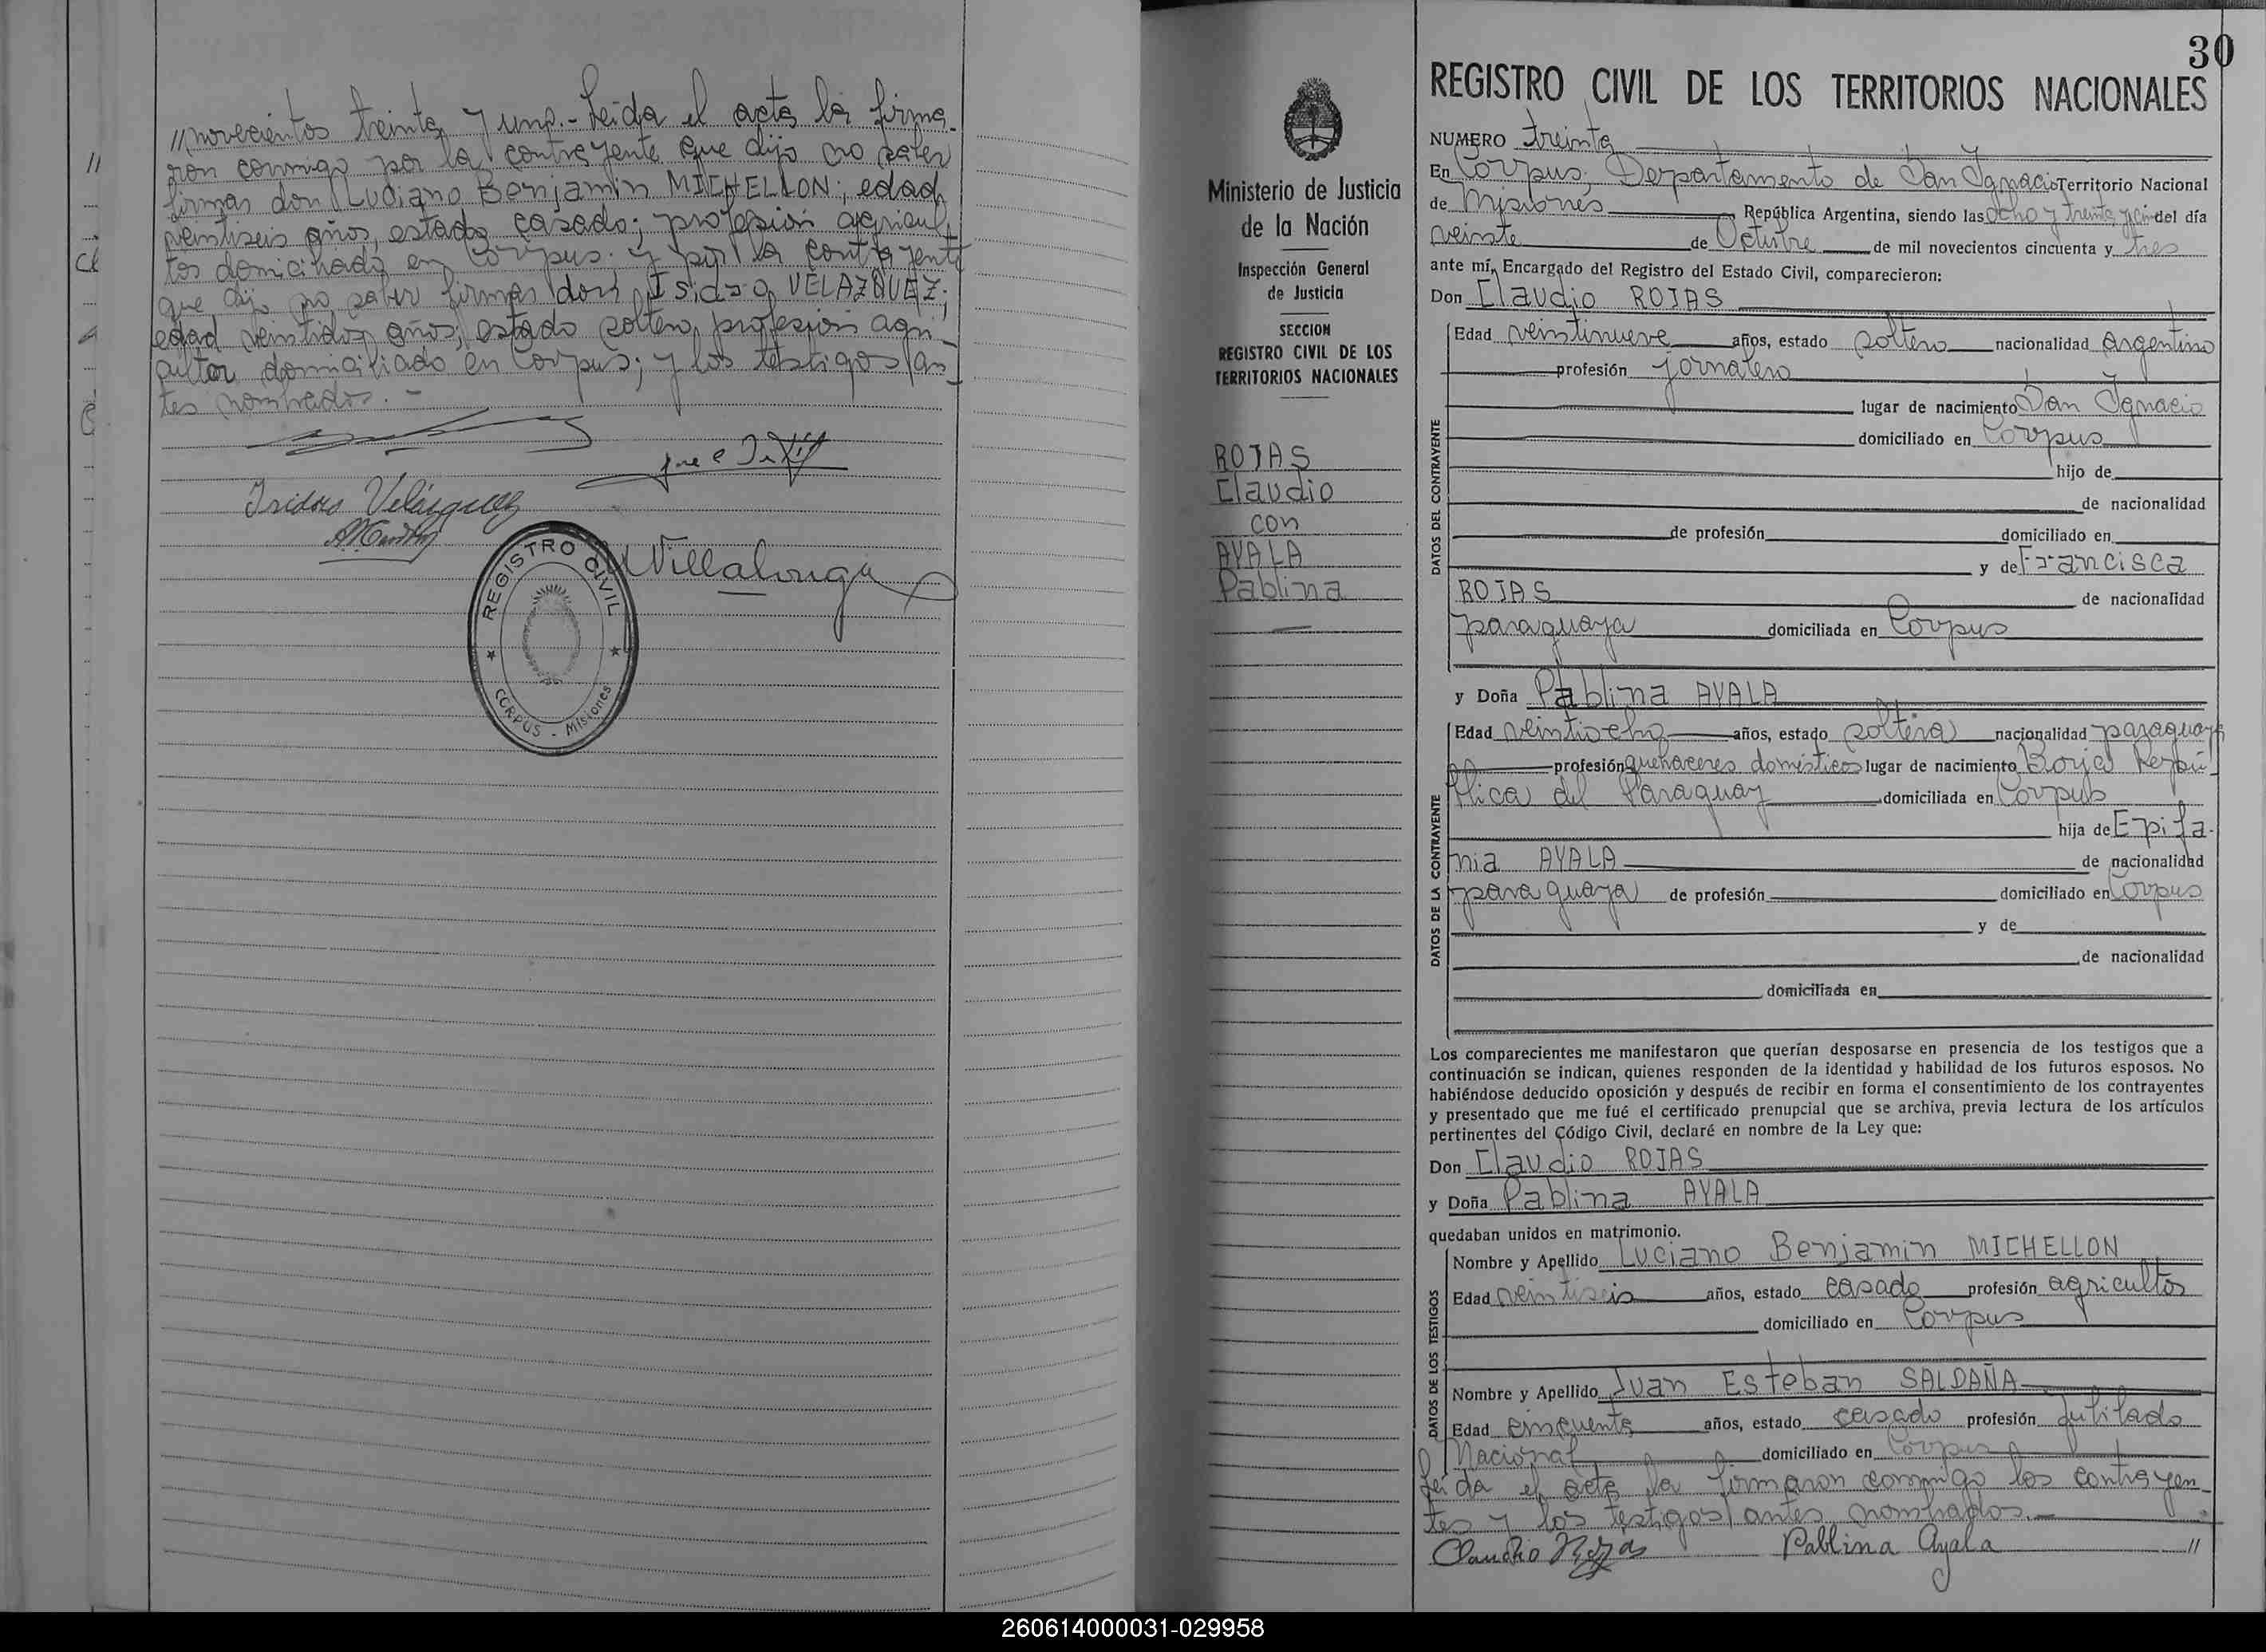 //novecientos treinta y uno.- Leida el acta la firma-
ron conmigo por la contrayente que dijo no saber
firmar don Luciano Benjamin MICHELLON; edad
veintiseis años, estado casado; profesión agricul
tor domiciliado en Corpus; y por la contrayente
que dijo no saber firmar don Isidro VELAZQUEZ;
edad veintidos años; estado soltero, profesión agri-
cultor domiciliado en Corpus; y los testigos an-
tes nombrados.-
Isidro Velázquez
Villalonga
REGISTRO CIVIL
CORPUS - Misiones
Ministerio de Justicia
de la Nación
Inspección General
de Justicia
SECCION
REGISTRO CIVIL DE LOS
TERRITORIOS NACIONALES
ROJAS
Claudio
con
AYALA
Pablina
30
REGISTRO CIVIL DE LOS TERRITORIOS NACIONALES
NUMERO treinta
En Corpus, Departamento de San Ignacio Territorio Nacional
de Misiones República Argentina, siendo las ocho y treinta del día
veinte de Octubre de mil novecientos cincuenta y tres
ante mí, Encargado del Registro del Estado Civil, comparecieron:
Don Claudio ROJAS
DATOS DEL CONTRAYENTE
Edad veintinueve años, estado soltero nacionalidad argentino
profesión jornalero
lugar de nacimiento San Ignacio
domiciliado en Corpus
hijo de
de nacionalidad
de profesión domiciliado en
y de Francisca
ROJAS de nacionalidad
paraguaya domiciliada en Corpus
y Doña Pablina AYALA
DATOS DE LA CONTRAYENTE
Edad veintiocho años, estado soltera nacionalidad paraguaya
profesión quehaceres domésticos lugar de nacimiento Borja Repú-
blica del Paraguay domiciliada en Corpus
hija de Epifa-
nia AYALA de nacionalidad
paraguaya de profesión domiciliado en Corpus
y de
de nacionalidad
domiciliada en
Los comparecientes me manifestaron que querían desposarse en presencia de los testigos que a
continuación se indican, quienes responden de la identidad y habilidad de los futuros esposos. No
habiéndose deducido oposición y después de recibir en forma el consentimiento de los contrayentes
y presentado que me fué el certificado prenupcial que se archiva, previa lectura de los artículos
pertinentes del Código Civil, declaré en nombre de la Ley que:
Don Claudio ROJAS
y Doña Pablina AYALA
quedaban unidos en matrimonio.
DATOS DE LOS TESTIGOS
Nombre y Apellido Luciano Benjamin MICHELLON
Edad veintiseis años, estado casado profesión agricultor
domiciliado en Corpus
Nombre y Apellido Juan Esteban SALDAÑA
Edad cincuenta años, estado casado profesión Jubilado
Nacional domiciliado en Corpus
Leida el acta la firmaron conmigo los contrayen-
tes y los testigos antes nombrados.-
Claudio Rojas Pablina Ayala //
260614000031-029958